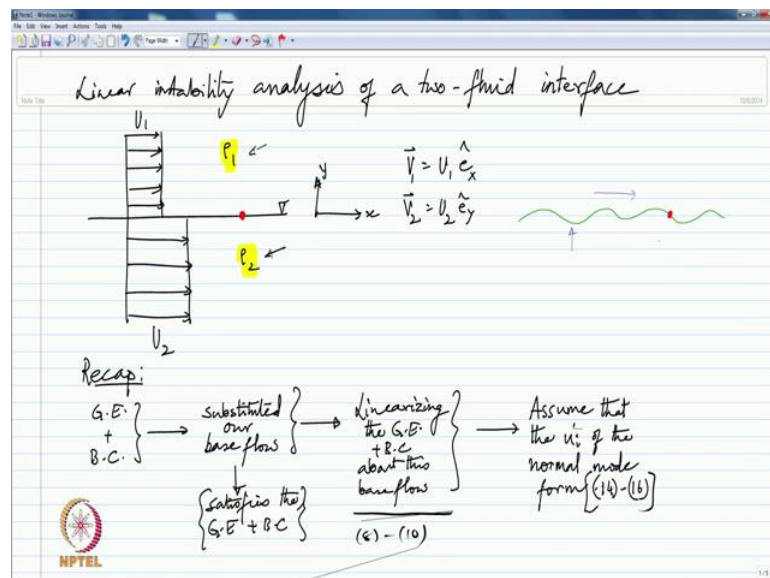 Note1 - Windows Journal
File Edit View Insert Actions Tools Help
Page Width
Note Title
10/8/2014
Linear intability analysis of a two-fluid interface
U1
ρ1
y
x
V⃗1 = U1 êx
V⃗2 = U2 êy
ρ2
U2
Recap:
G.E.
+
B.C.
substituted
our
base flow
satisfies the
G.E + B.C
Linearizing
the G.E.
+ B.C
about this
base flow
(8) - (10)
Assume that
the u'i of the
normal mode
form [(14) - (16)]
NPTEL
1/5